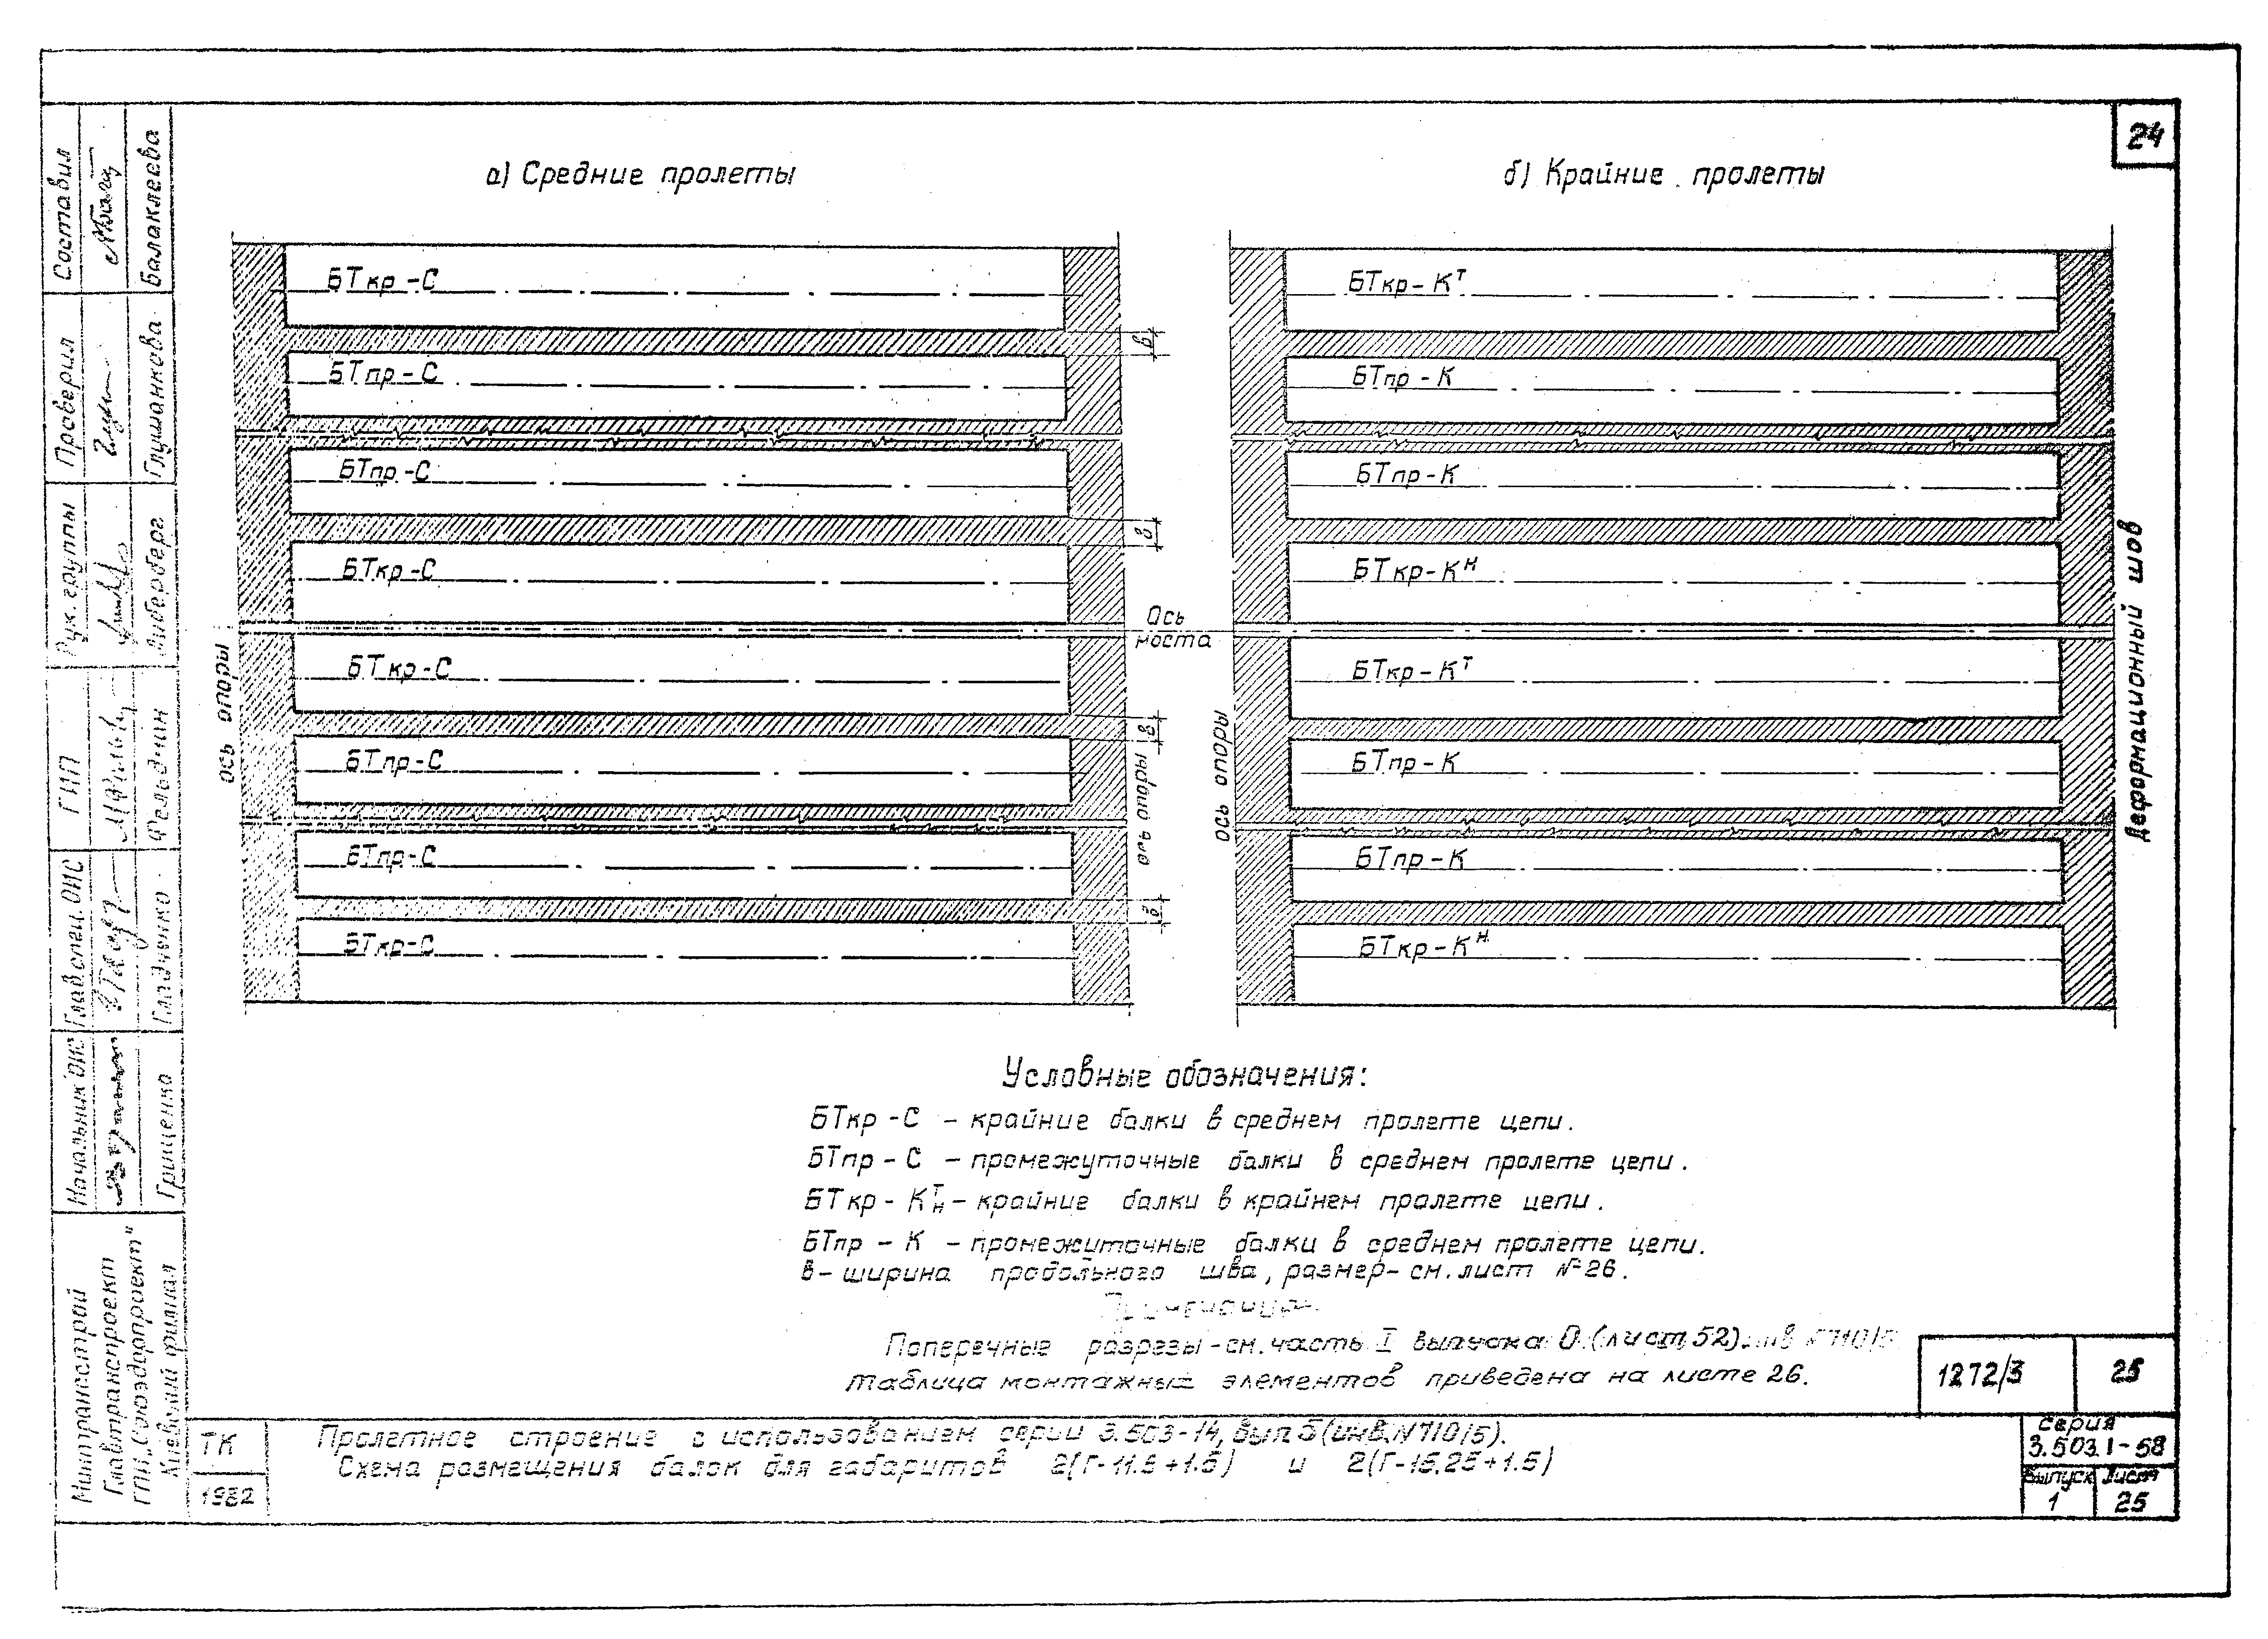 24
а) Средние пролеты
б) Крайние пролеты
БТкр-С
БТпр-С
БТпр-С
БТкр-С
БТкр-С
БТпр-С
БТпр-С
БТкр-С
в
в
в
в
ось опоры
Ось
моста
ось опоры
БТкр-Кᵀ
БТпр-К
БТпр-К
БТкр-Кᴴ
БТкр-Кᵀ
БТпр-К
БТпр-К
БТкр-Кᴴ
ось опоры
Деформационный шов
Условные обозначения:
БТкр-С – крайние балки в среднем пролете цепи.
БТпр-С – промежуточные балки в среднем пролете цепи.
БТкр-Кᵀн – крайние балки в крайнем пролете цепи.
БТпр-К – промежуточные балки в среднем пролете цепи.
в- ширина продольного шва, размер- см. лист №26.
Поперечные разрезы - см. часть I выпуска 0 (лист 52). инв. №710/5
таблица монтажных элементов приведена на листе 26.
1272/3
25
ТК
1982
Пролетное строение с использованием серии 3.503-14, вып. 5 (инв. N710/5).
Схема размещения балок для габаритов 2(Г-11.5+1.5) и 2(Г-15.25+1.5)
Серия
3.503.1-58
Выпуск Лист
1 25
Составил
Балаклеева
Проверил
Глушанкова
Рук. группы
Либерберг
ГИП
Фельдман
Глав. спец. ОИС
Гладченко
Начальник ОИС
Гриценко
Минтрансстрой
Главтранспроект
ГПИ „Союздорпроект"
Киевский филиал